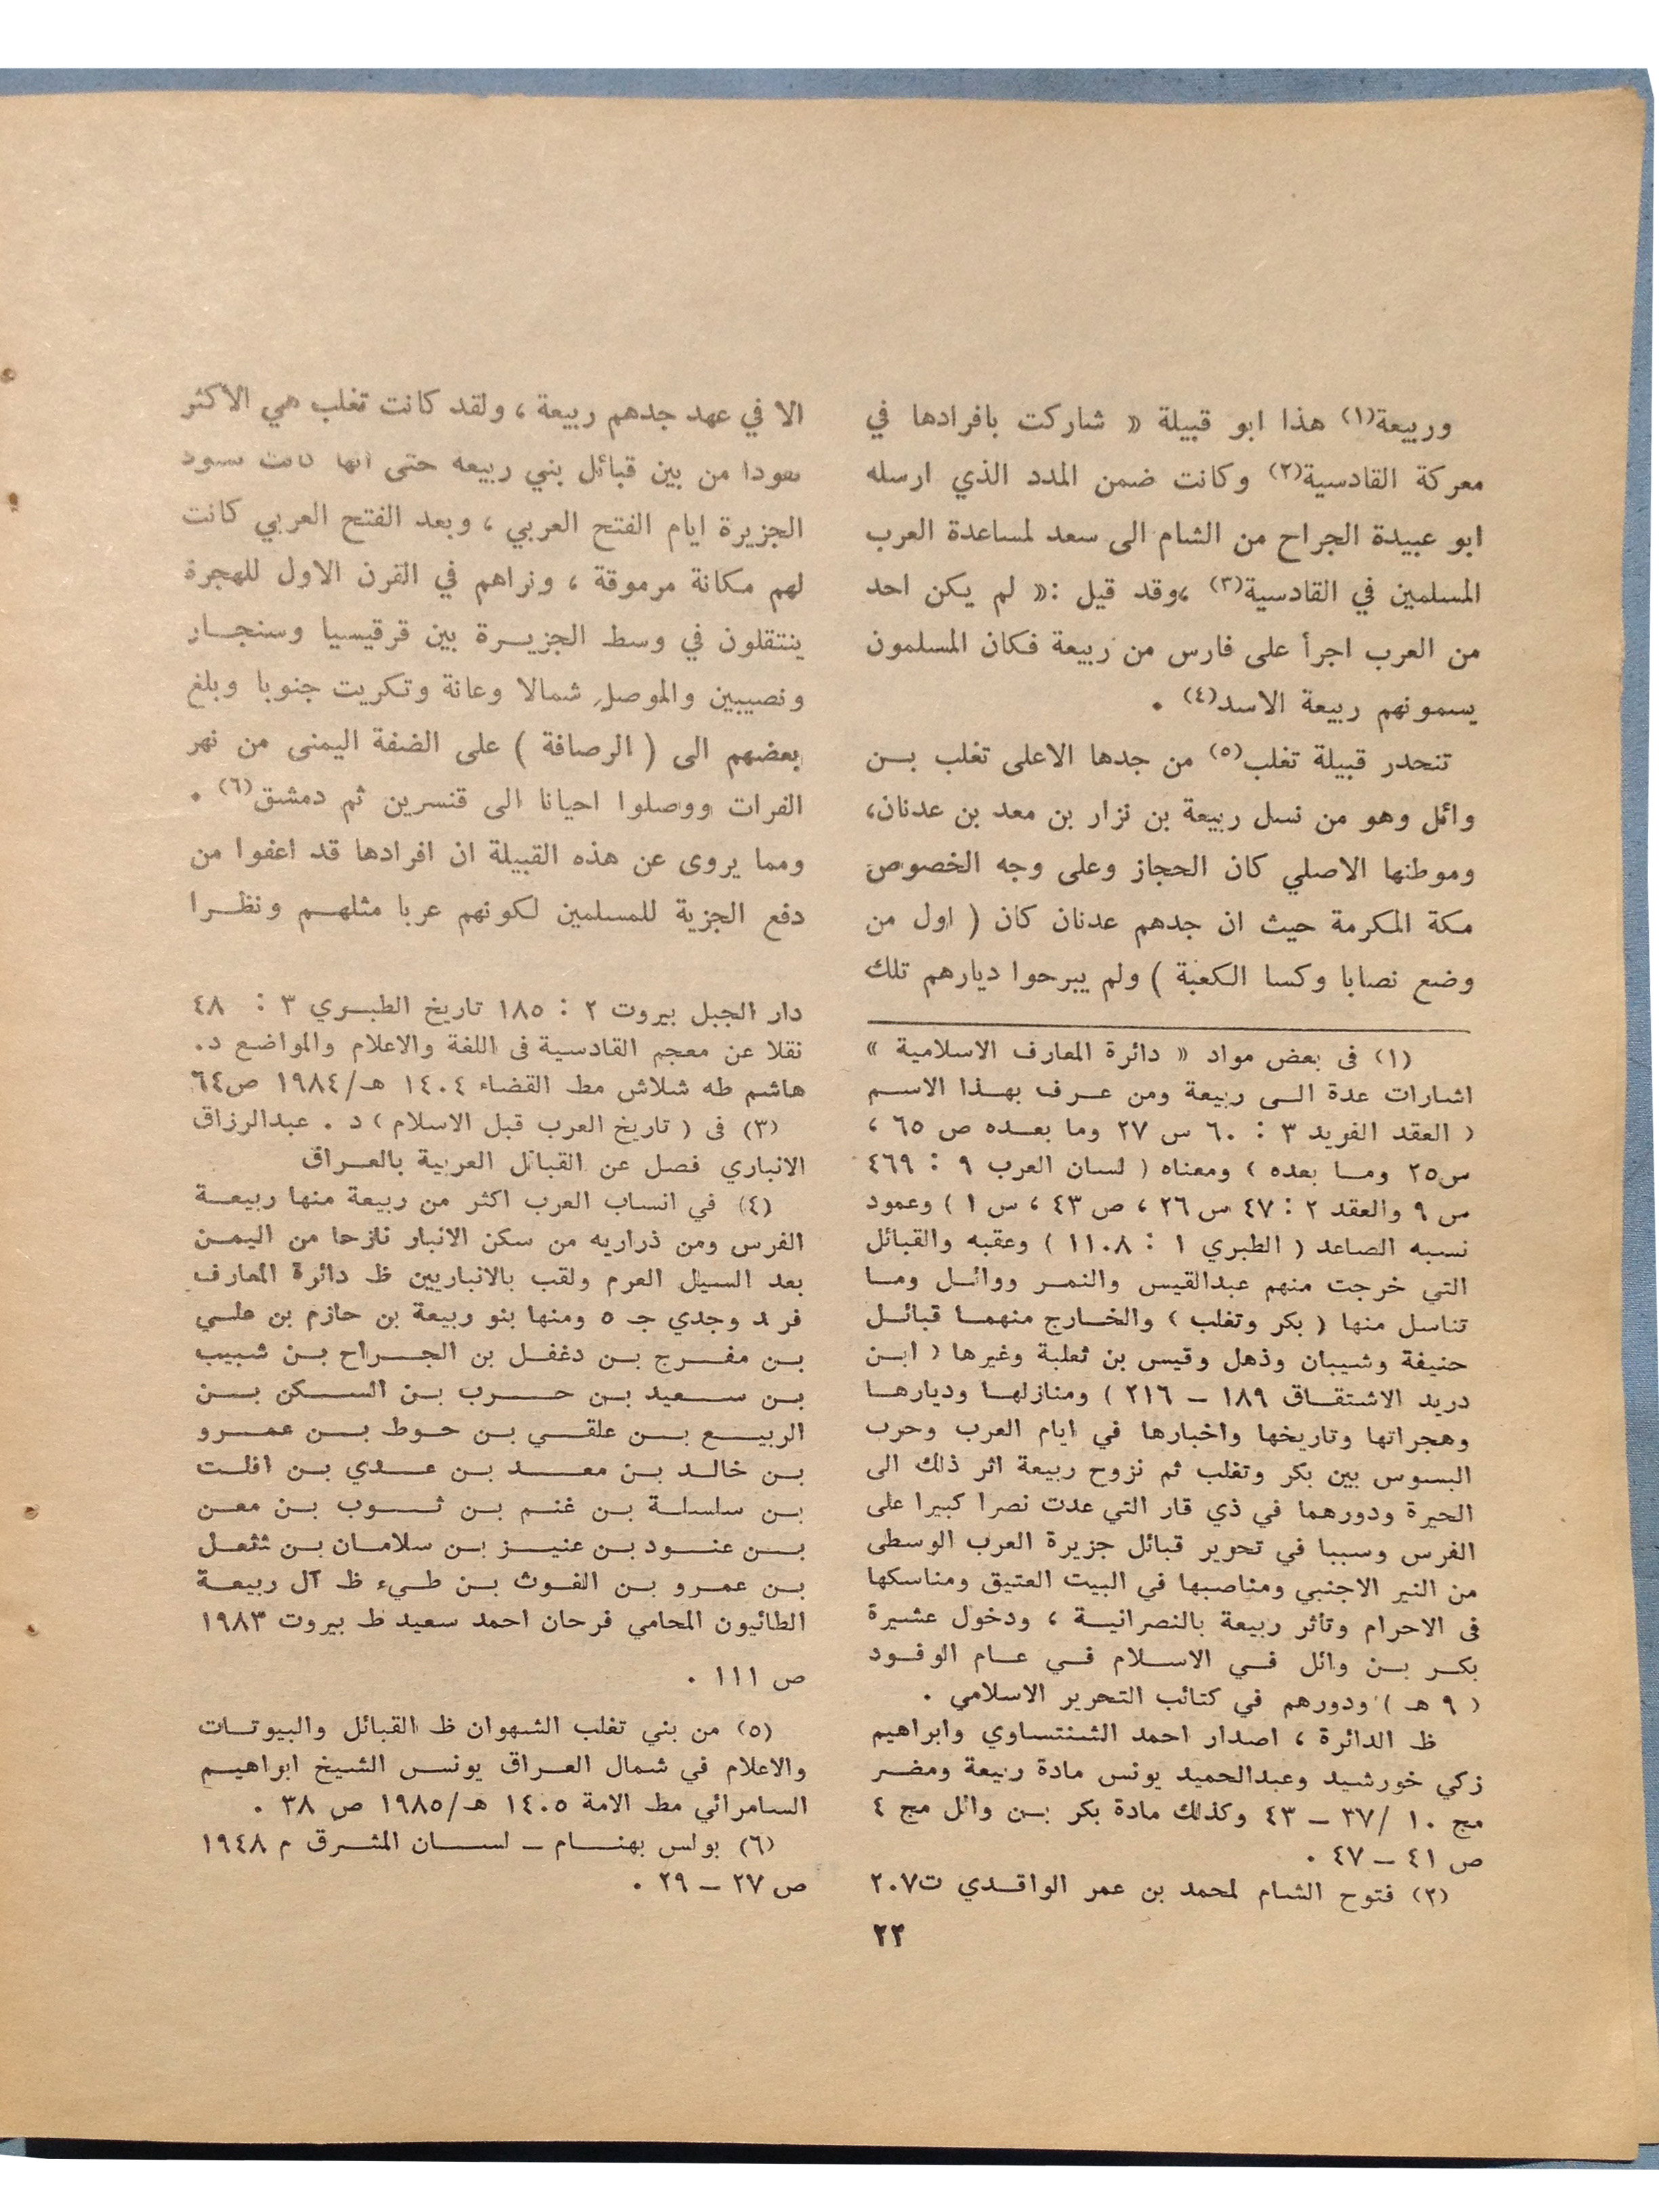 وربيعة(١) هذا ابو قبيلة « شاركت بافرادها في
معركة القادسية(٢) وكانت ضمن المدد الذي ارسله
ابو عبيدة الجراح من الشام الى سعد لمساعدة العرب
المسلمين في القادسية(٣) ،وقد قيل :« لم يكن احد
من العرب اجرأ على فارس من ربيعة فكان المسلمون
يسمونهم ربيعة الاسد(٤) .
تنحدر قبيلة تغلب(٥) من جدها الاعلى تغلب بن
وائل وهو من نسل ربيعة بن نزار بن معد بن عدنان،
وموطنها الاصلي كان الحجاز وعلى وجه الخصوص
مكة المكرمة حيث ان جدهم عدنان كان ( اول من
وضع نصابا وكسا الكعبة ) ولم يبرحوا ديارهم تلك
(١) فى بعض مواد « دائرة المعارف الاسلامية »
اشارات عدة الى ربيعة ومن عرف بهذا الاسم
( العقد الفريد ٣ : ٦٠ س ٢٧ وما بعده ص ٦٥ ،
س٢٥ وما بعده ) ومعناه ( لسان العرب ٩ : ٤٦٩
س ٩ والعقد ٢ : ٤٧ س ٢٦ ، ص ٤٣ ، س ١ ) وعمود
نسبه الصاعد ( الطبري ١ : ١١٠٨ ) وعقبه والقبائل
التي خرجت منهم عبدالقيس والنمر ووائل وما
تناسل منها ( بكر وتغلب ) والخارج منهما قبائل
حنيفة وشيبان وذهل وقيس بن ثعلبة وغيرها ( ابن
دريد الاشتقاق ١٨٩ – ٢١٦ ) ومنازلها وديارها
وهجراتها وتاريخها واخبارها في ايام العرب وحرب
البسوس بين بكر وتغلب ثم نزوح ربيعة اثر ذلك الى
الحيرة ودورهما في ذي قار التي عدت نصرا كبيرا على
الفرس وسببا في تحرير قبائل جزيرة العرب الوسطى
من النير الاجنبي ومناصبها في البيت العتيق ومناسكها
فى الاحرام وتأثر ربيعة بالنصرانية ، ودخول عشيرة
بكر بن وائل في الاسلام في عام الوفود
( ٩ هـ ) ودورهم في كتائب التحرير الاسلامي .
ظ الدائرة ، اصدار احمد الشنتساوي وابراهيم
زكي خورشيد وعبدالحميد يونس مادة ربيعة ومضر
مج ١٠ /٣٧ – ٤٣ وكذلك مادة بكر بن وائل مج ٤
ص ٤١ – ٤٧ .
(٢) فتوح الشام لمحمد بن عمر الواقدي ت٢٠٧
الا في عهد جدهم ربيعة ، ولقد كانت تغلب هي الاكثر
من بين قبائل بني ربيعه حتى انها كانت تسود
الجزيرة ايام الفتح العربي ، وبعد الفتح العربي كانت
لهم مكانة مرموقة ، ونراهم في القرن الاول للهجرة
ينتقلون في وسط الجزيرة بين قرقيسيا وسنجار
ونصيبين والموصل شمالا وعانة وتكريت جنوبا وبلغ
بعضهم الى ( الرصافة ) على الضفة اليمنى من نهر
الفرات ووصلوا احيانا الى قنسرين ثم دمشق(٦) .
ومما يروى عن هذه القبيلة ان افرادها قد اعفوا من
دفع الجزية للمسلمين لكونهم عربا مثلهم ونظرا
دار الجبل بيروت ٢ : ١٨٥ تاريخ الطبري ٣ : ٤٨
نقلا عن معجم القادسية فى اللغة والاعلام والمواضع د.
هاشم طه شلاش مط القضاء ١٤٠٤ هـ/١٩٨٤ ص٦٤
(٣) فى ( تاريخ العرب قبل الاسلام ) د . عبدالرزاق
الانباري فصل عن القبائل العربية بالعراق
(٤) في انساب العرب اكثر من ربيعة منها ربيعة
الفرس ومن ذراريه من سكن الانبار نازحا من اليمن
بعد السيل العرم ولقب بالانباريين ظ دائرة المعارف
فر د وجدي جـ ٥ ومنها بنو ربيعة بن حازم بن علي
بن مفرج بن دغفل بن الجراح بن شبيب
بن سعيد بن حرب بن السكن بن
الربيع بن علقي بن حوط بن عمرو
بن خالد بن معد بن عدي بن افلت
بن سلسلة بن غنم بن ثوب بن معن
بن عنود بن عنيز بن سلامان بن ثثعل
بن عمرو بن الغوث بن طيء ظ آل ربيعة
الطائيون المحامي فرحان احمد سعيد ط بيروت ١٩٨٣
ص ١١١ .
(٥) من بني تغلب الشهوان ظ القبائل والبيوتات
والاعلام في شمال العراق يونس الشيخ ابراهيم
السامرائي مط الامة ١٤٠٥ هـ/١٩٨٥ ص ٣٨ .
(٦) بولس بهنام – لسان المشرق م ١٩٤٨
ص ٢٧ – ٢٩ .
٢٢